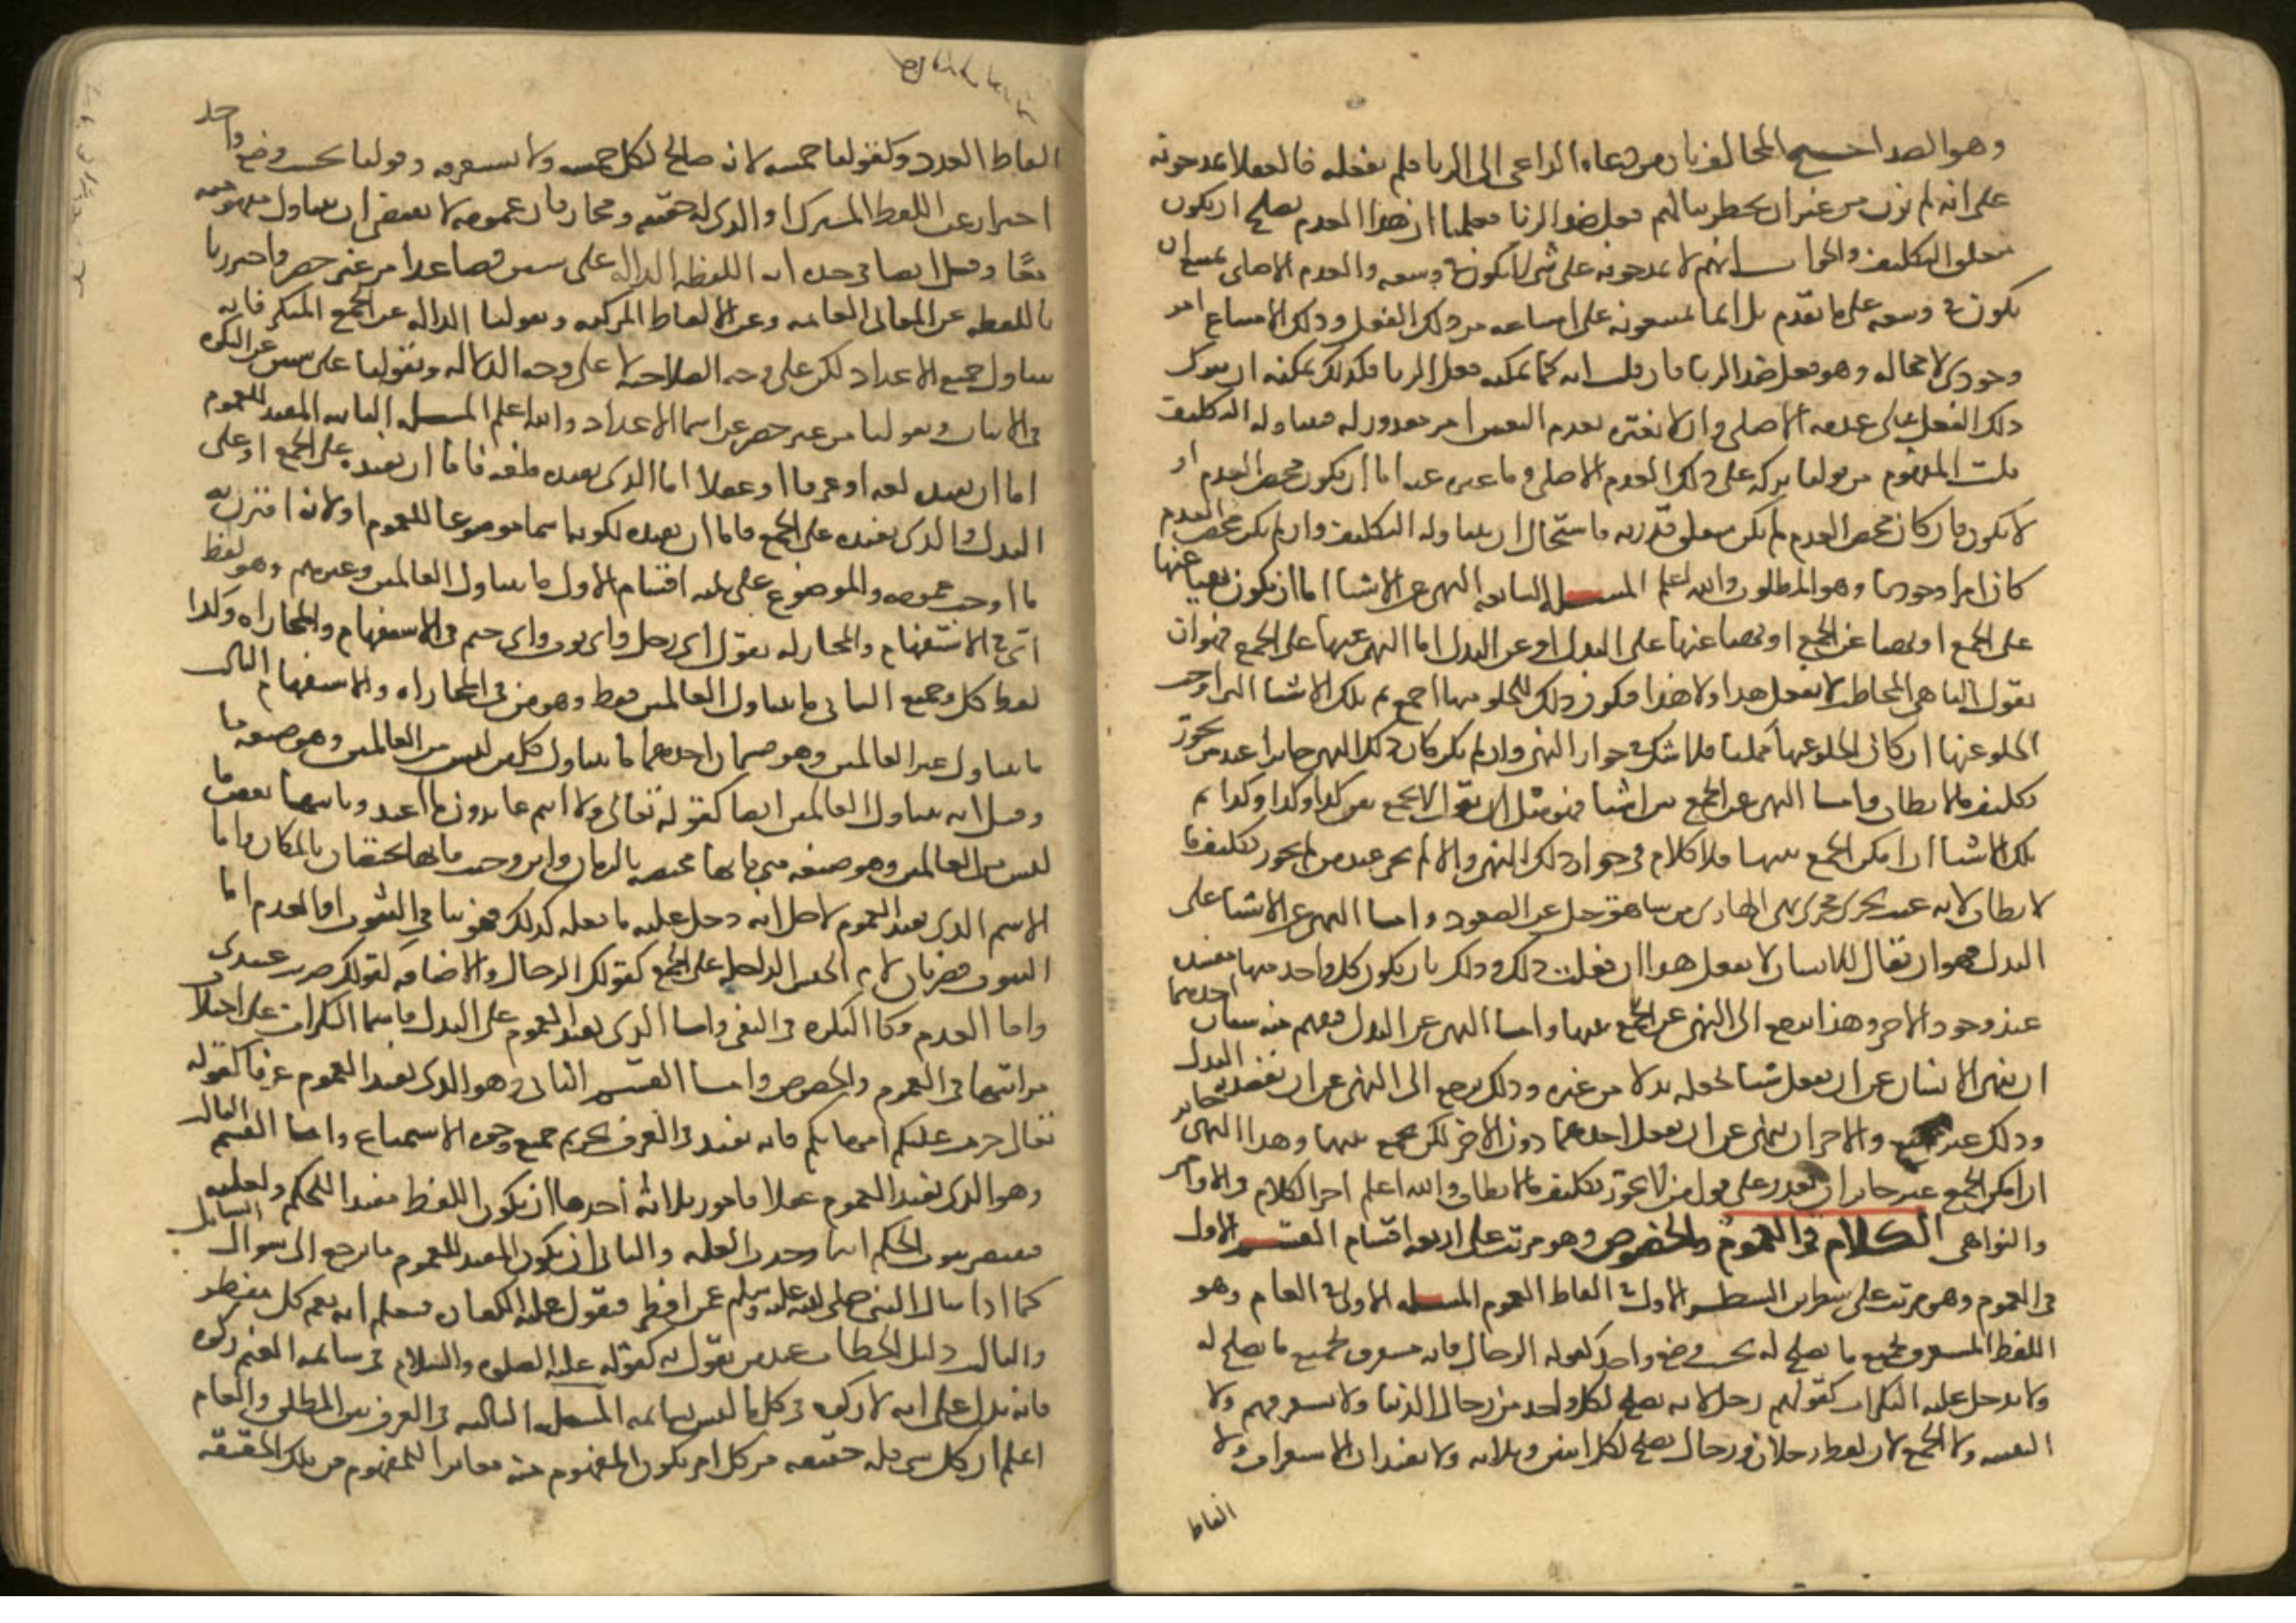 وهو الضد احتج المخالف بان من دعاه الداعى الى الزنا فلم يفعله فالعقلا يمدحونه
على انه لم يزن من غير ان يخطر ببالهم فعل ضد الزنا فعلمنا ان هذا العدم يصلح ان يكون
متعلق التكليف والجواب انهم لا يمدحونه على شى لا يكون فى وسعه والعدم الاصلى يمتنع ان
يكون فى وسعه على ما تقدم بل انما يمدحونه على امتناعه من ذلك الفعل وذلك الامتناع امر
وجودى لا محاله وهو فعل ضد الزنا فان قلت انه كما يمكنه فعل الزنا فكذلك يمكنه ان يترك
ذلك الفعل على عدمه الاصلى وان لا يغيره فعدم التغيير امر مقدور له فيتناوله التكليف
قلت المفهوم من قولنا تركه على ذلك العدم الاصلى وما غيره عنه اما ان يكون محض العدم او
لا يكون فان كان محض العدم لم يكن متعلق قدرته فاستحال ان يتناوله التكليف وان لم يكن محض العدم
كان امرا وجوديا وهو المطلوب والله اعلم المسئله السابعه النهى عن الاشيا اما ان يكون نهيا عنها
على الجمع او نهيا عن الجمع او نهيا عنها على البدل او عن البدل اما النهى عنها على الجمع فهو ان
يقول الناهى للمخاطب لا تفعل هذا ولا هذا فيكون ذلك للخلو منها اجمع ثم تلك الاشيا التى اوجب
الخلو عنها ان كان الخلو عنها ممكنا فلا شك فى جواز النهى وان لم يكن كان ذلك النهى جايزا عند من يجوز
تكليف ما لا يطاق واما النهى عن الجمع بين اشيا فهو مثل ان يقول لا تجمع بين كذا وكذا وكذا ثم
تلك الاشيا ان امكن الجمع بينها فلا كلام فى جواز ذلك النهى والا لم يجز عند من لم يجوز تكليف ما
لا يطاق لانه عبث يجرى مجرى نهى الهاوى من شاهق جبل عن الصعود واما النهى عن الاشيا على
البدل فهو ان يقال للانسان لا تفعل هذا ان فعلت ذلك وذلك بان يكون كل واحد منها مفسده
عند وجود الاخر وهذا يرجع الى النهى عن الجمع بينهما واما النهى عن البدل فيفهم منه شيان احدهما
ان ينهى الانسان عن ان يفعل شيا يجعله بدلا من غيره وذلك يرجع الى النهى عن ان يقصد به البدل
وذلك غير ممتنع والاخر ان ينهى عن ان يفعل احدهما دون الاخر لكن يجمع بينهما وهذا النهى جايز
ان امكن الجمع غير جايز ان تعذر على قول من لا يجوز تكليف ما لا يطاق والله اعلم اخر الكلام فى الاوامر
والنواهى الكلام فى العموم والخصوص وهو مرتب على اربعه اقسام القسم الاول
فى العموم وهو مرتب على شطرين الشطر الاول فى الفاظ العموم المسئله الاولى فى العام وهو
اللفظ المستغرق لجميع ما يصلح له بحسب وضع واحد كقوله الرجال فانه مستغرق لجميع ما يصلح له
ولا يدخل عليه النكرات كقولهم رجل لانه يصلح لكل واحد من رجال الدنيا ولا يستغرقهم ولا
التثنيه ولا الجمع لان لفظ رجلان ورجال يصلح لكل اثنين وثلاثه ولا يفيدان الاستغراق ولا
الفاظ
الفاظ العدد وكقولنا خمسه لانه صالح لكل خمسه ولا يستغرقه وقولنا بحسب وضع واحد
احتراز عن اللفظ المشترك او الذى له حقيقه ومجاز فان عمومه لا يقتضى ان يتناول مفهوميه
معًا وقيل ايضا فى حده انه اللفظه الداله على شيين فصاعدا من غير حصر واحترزنا
باللفظه عن المعانى العامه وعن الالفاظ المركبه وبقولنا الداله عن الجمع المنكر فانه
يتناول جميع الاعداد لكن على وجه الصلاحيه لا على وجه الدلاله وبقولنا على شيين عن النكره
فى الاثبات وبقولنا من غير حصر عن اسما الاعداد والله اعلم المسئله الثانيه المفيد للعموم
اما ان يفيده لغه او عرفا او عقلا اما الذى يفيده لغه فاما ان يفيده على الجمع او على
البدل والذى يفيده على الجمع فاما ان يفيده لكونه اسما موضوعا للعموم او لانه اقترن به
ما اوجب عمومه والموضوع على ثلثه اقسام الاول ما يتناول العالمين وغيرهم وهو لفظ
اى فى الاستفهام والمجازاه تقول اى رجل واى ثوب واى جسم فى الاستفهام والمجازاه وكذا
لفظ كل وجميع الثانى ما يتناول العالمين فقط وهو من فى المجازاه والاستفهام الثالث
ما يتناول غير العالمين وهو قسمان احدهما ما يتناول كل ما ليس من العالمين وهو صيغه ما
وقيل انه يتناول العالمين ايضا كقوله تعالى ولا انتم عابدون ما اعبد وثانيهما بعض ما
ليس من العالمين وهو صيغه متى فانها مختصه بالزمان واين وحيث فانهما يختصان بالمكان واما
الاسم الذى يفيد العموم لاجل انه دخل عليه ما جعله كذلك فهو اما فى الثبوت او العدم اما
الثبوت فضربان لام الجنس الداخله على الجمع كقولك الرجال والاضافه كقولك ضربت عبيدى
واما العدم فكالنكره فى النفى واما الذى يفيد العموم على البدل فاسما النكرات على اختلاف
مراتبها فى العموم والخصوص واما القسم الثانى وهو الذى يفيد العموم عرفا كقوله
تعالى حرمت عليكم امهاتكم فانه يفيد فى العرف تحريم جميع وجوه الاستمتاع واما القسم الثالث
وهو الذى يفيد العموم عقلا فامور ثلاثه أحدها ان يكون اللفظ مفيدا للحكم ولعلته
فيقتضى ثبوت الحكم اينما وجدت العله والثانى ان يكون المفيد للعموم ما يرجع الى سوال السايل
كما اذا سال النبى صلى الله عليه وسلم عمن افطر فيقول عليه الكفاره فيعلم انه يعم كل مفطر
والثالث دليل الخطاب عند من يقول به كقوله عليه الصلوه والسلام فى سايمه الغنم زكوه
فانه يدل على انه لا زكوه فى كل ما ليس بسايمه المسئله الثالثه فى الفرق بين المطلق والعام
اعلم ان كل شى فله حقيقه فكل امر يكون المفهوم منه مغايرا للمفهوم من تلك الحقيقه